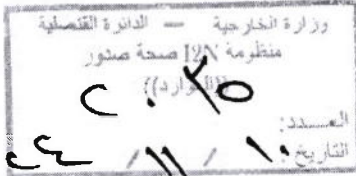 وزارة الخارجية – الدائرة القنصلية
منظومة I2N صحة صدور
((الوارد))
العــدد:
التاريخ: ١٠ / ١١ /